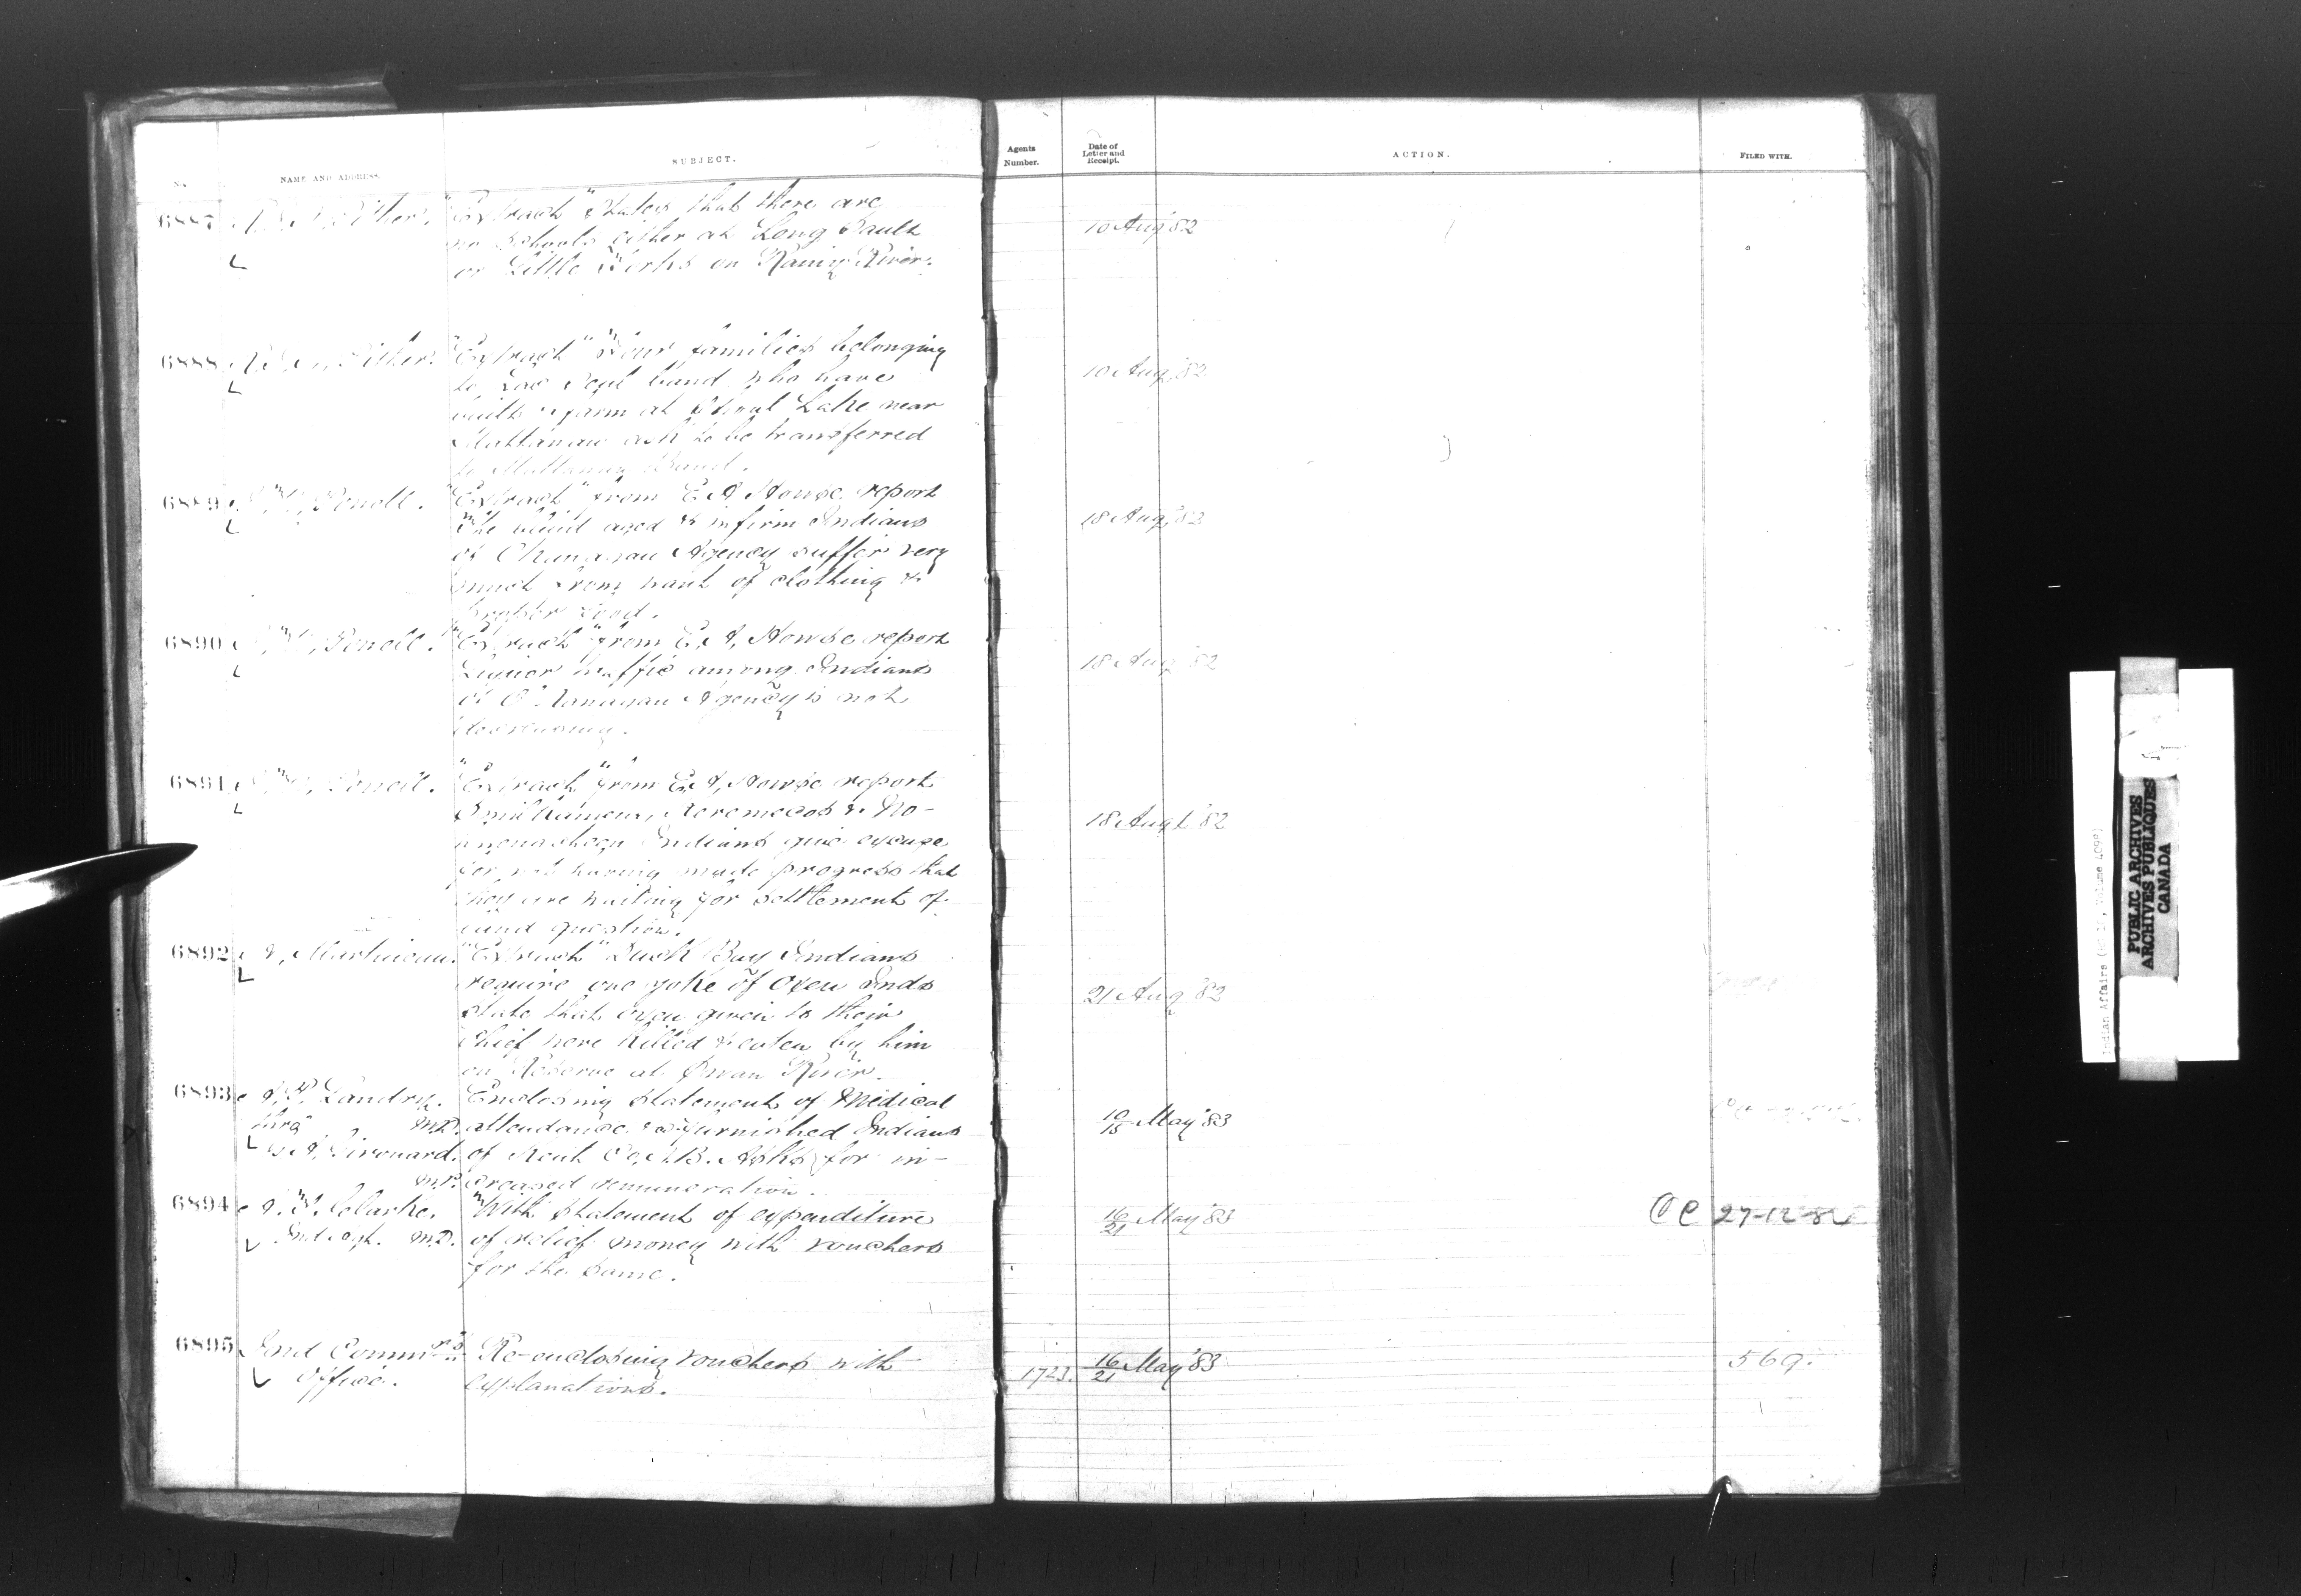 No. NAME AND ADDRESS. SUBJECT. Agents Number. Date of Letter and Receipt. ACTION. FILED WITH.
6887 Pither. "Extract" States that there are 10 Aug '82
no schools either at Long Sault
or Little Forks on Rainy River.
6888 Pither. "Extract" Four families belonging 10 Aug '82
to Lac Seul band who have
built & farm at Shoal Lake near
Mattawan ask to be transferred
to Band.
6889 I. W. Powell. "Extract" from C. A. Howse report 18 Aug '82
The blind aged & infirm Indians
of Okanagan Agency suffer very
much from want of clothing &
proper food.
6890 I. W. Powell. "Extract" from C. A. Howse report 18 Aug '82
Liquor traffic among Indians
of O'Kanagan Agency is not
decreasing.
6891 I. W. Powell. "Extract" from C. A. Howse report 18 Augt '82
Similkameen, Keremeeos & 
Indians give excuse
for not having made progress that
they are waiting for settlement of
land question.
6892 Martineau. "Extract" Duck Bay Indians 21 Aug '82
require one yoke of oxen Inds
state that oxen given to their
Chief were killed & eaten by him
on Reserve at Swan River.
6893 Landry. Enclosing statement of medical 10/15 May '83
thro' M.D. attendance furnished Indians
G. A. Girouard. of Kent Co, N.B. Asks for in-
M.P. creased remuneration.
6894 Clarke. With statement of expenditure 16/21 May '83 CC 27-12-8
Ind Agt. M.D. of relief money with vouchers
for the same.
6895 Ind Commr's Re-enclosing vouchers with 1723. 16/21 May '83 569.
Office. explanations.
PUBLIC ARCHIVES
ARCHIVES PUBLIQUES
CANADA
Indian Affairs